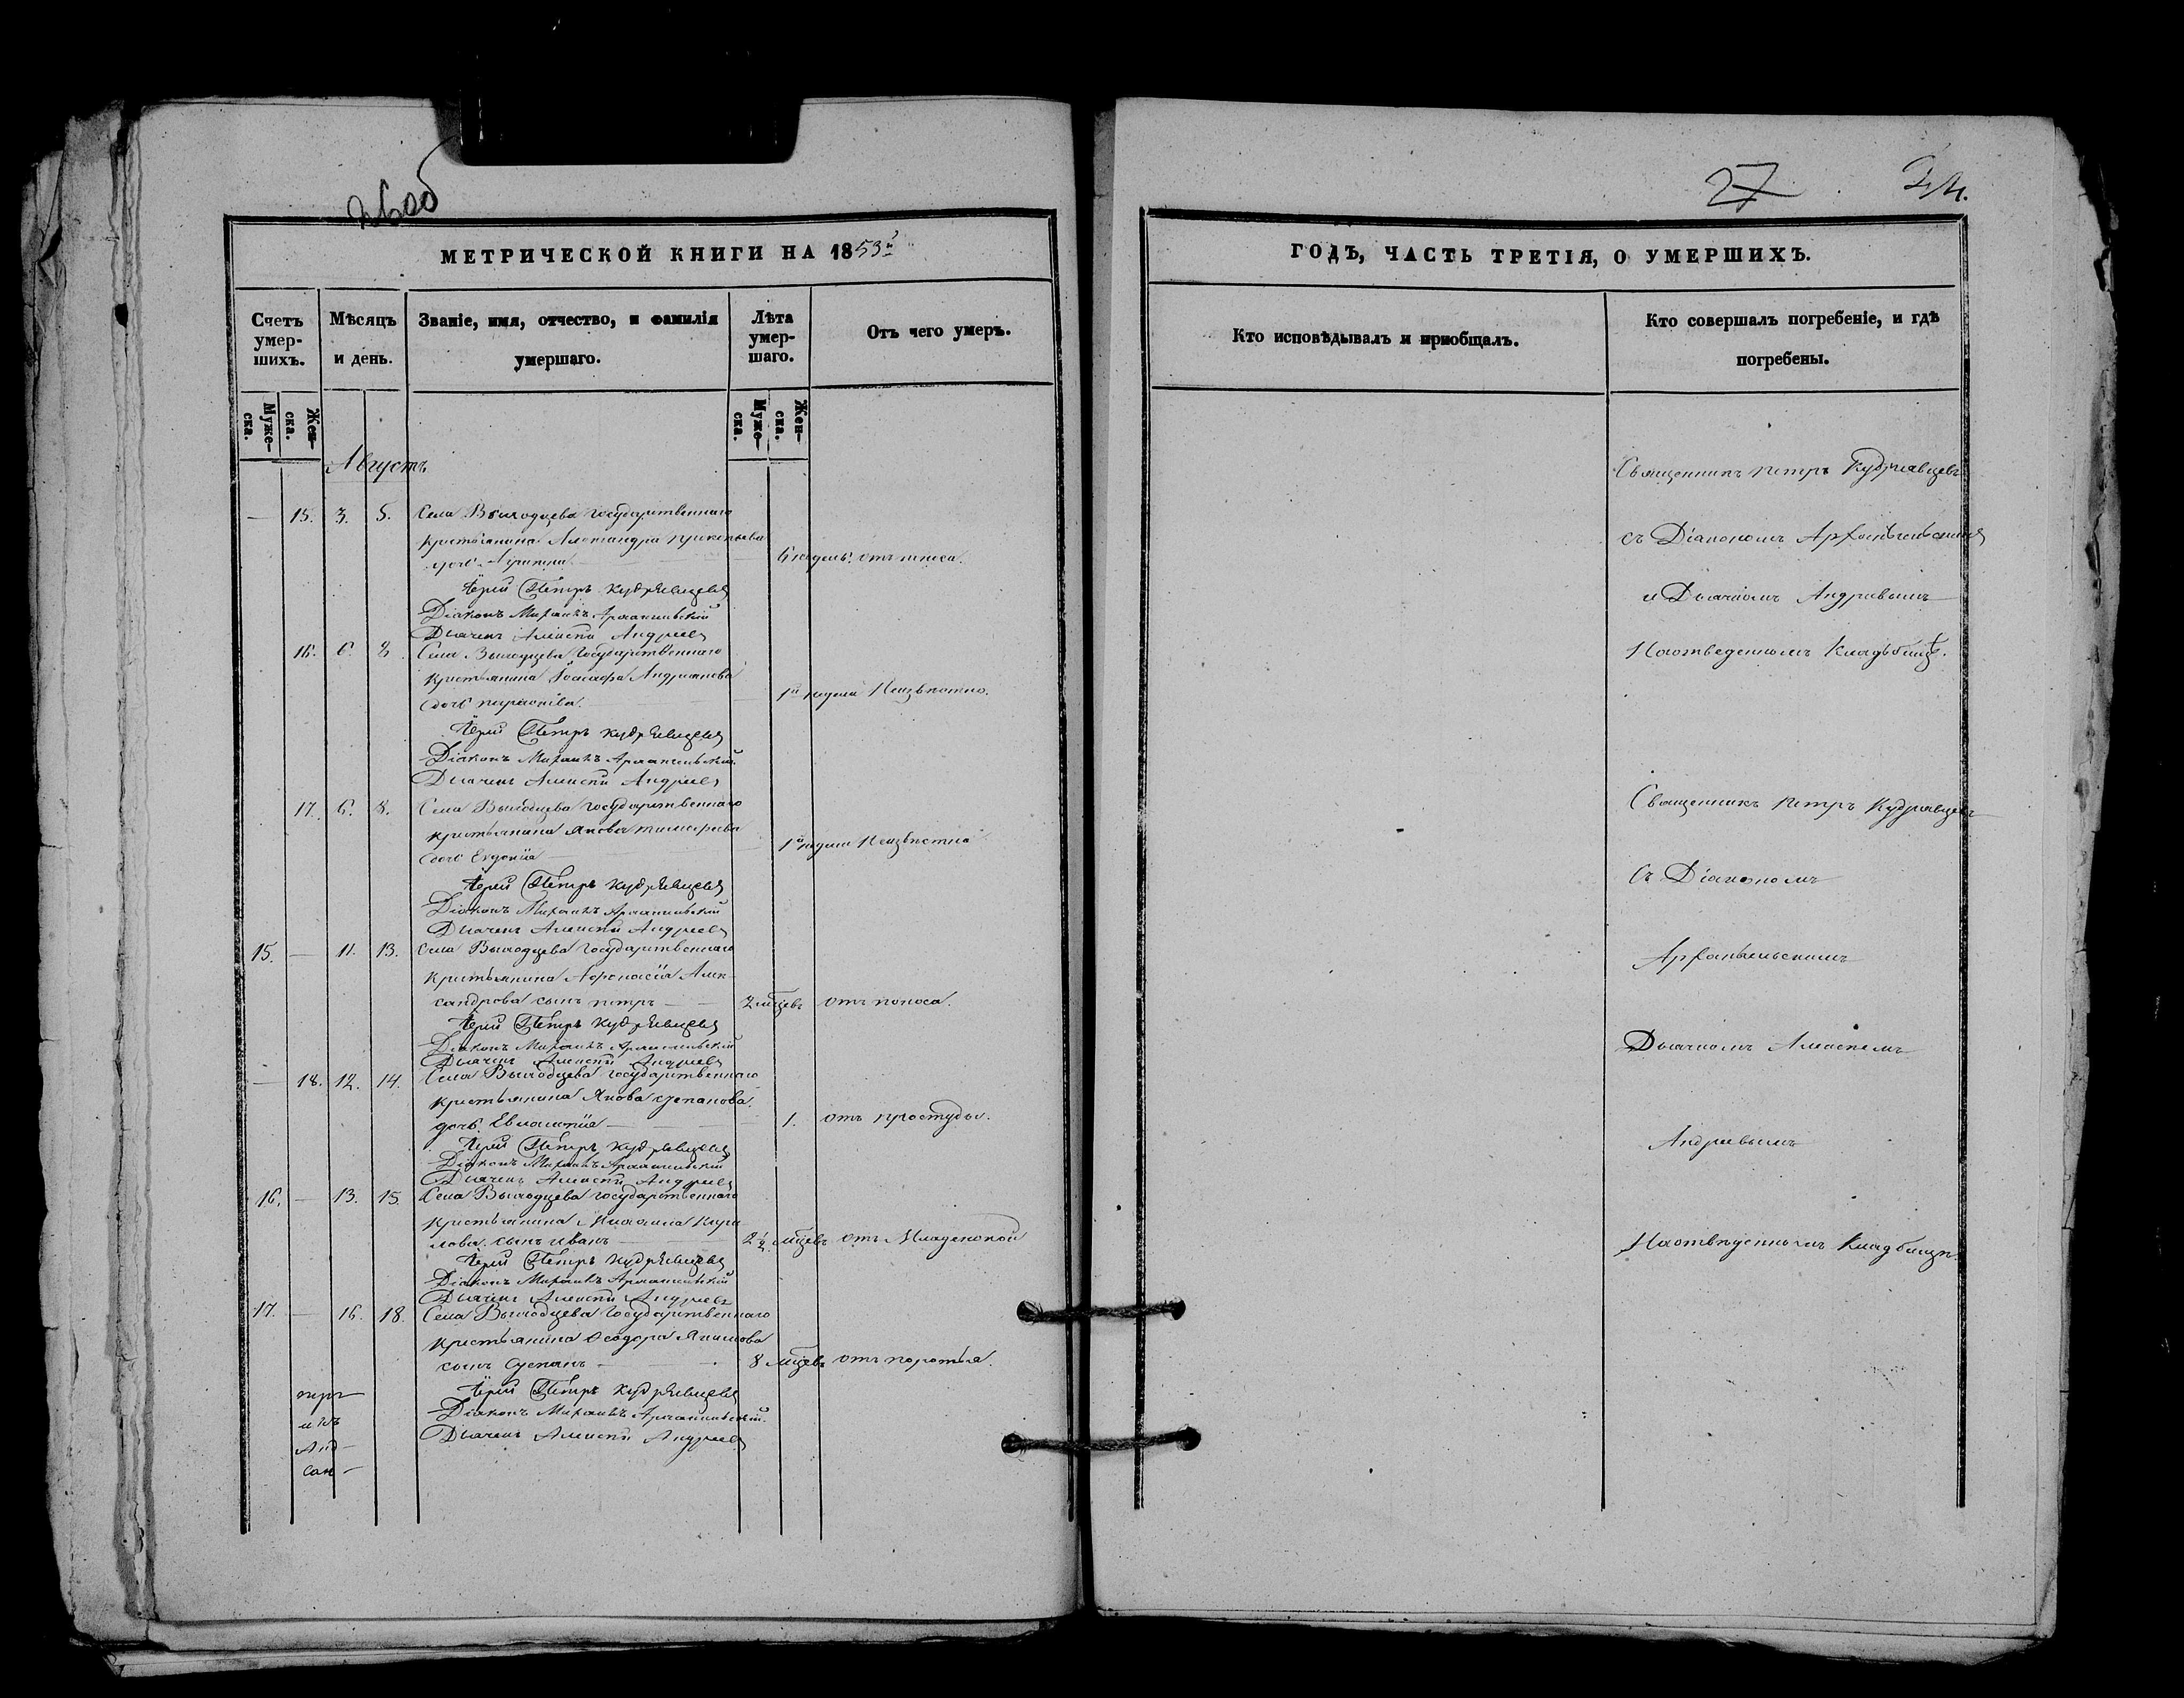 26об
МЕТРИЧЕСКОЙ КНИГИ НА 1853й
Счетъ умер-шихъ.
Мѣсяцъ и день.
Званіе, имя, отчество, и фамилія умершаго.
Лѣта умер-шаго.
Отъ чего умеръ.
Муже-ска.
Жен-ска.
Муже-ска.
Жен-ска.
Августъ
15. 3. 5. Села Выходцева Государственнаго
крестьянина Александра
дочь 6 недель отъ поноса.
Іерей Петръ Кудрявцевъ
Діаконъ Михаилъ Архангельскій
Дьячекъ Алексей Андреевъ
16. 6. 8. Села Выходцева Государственнаго
крестьянина Андрианова
дочь 1й недели Неизвѣстно.
Іерей Петръ Кудрявцевъ
Діаконъ Михаилъ Архангельскій
Дьячекъ Алексей Андреевъ
17. 6. 8. Села Выходцева Государственнаго
крестьянина Якова
дочь Евдокія 1й недели Неизвѣстно
Іерей Петръ Кудрявцевъ
Діаконъ Михаилъ Архангельскій
Дьячекъ Алексей Андреевъ
15. — 11. 13. Села Выходцева Государственнаго
крестьянина Афонасія Алек-
сандрова сынъ петръ 2 мѣцевъ отъ поноса.
Іерей Петръ Кудрявцевъ
Діаконъ Михаилъ Архангельскій
Дьячекъ Алексей Андреевъ
— 18. 12. 14. Села Выходцева Государственнаго
крестьянина Якова степанова
дочь 1. отъ простуды.
Іерей Петръ Кудрявцевъ
Діаконъ Михаилъ Архангельскій
Дьячекъ Алексей Андреевъ
16. — 13. 15. Села Выходцева Государственнаго
крестьянина Кири-
лова сынъ иванъ 2 1/2 мѣцевъ отъ Младенской
Іерей Петръ Кудрявцевъ
Діаконъ Михаилъ Архангельскій
Дьячекъ Алексей Андреевъ
17. — 16. 18. Села Выходцева Государственнаго
крестьянина Ѳеодора Якимова
сынъ Степанъ 8 мѣцевъ
Іерей Петръ Кудрявцевъ
Діаконъ Михаилъ Архангельскій
Дьячекъ Алексей Андреевъ
27
ГОДЪ, ЧАСТЬ ТРЕТІЯ, О УМЕРШИХЪ.
Кто исповѣдывалъ и пріобщалъ.
Кто совершалъ погребеніе, и гдѣ погребены.
Священникъ петръ Кудрявцевъ
съ Діакономъ Архангельскимъ
и Дьячкомъ Андреевымъ
На отведенномъ Кладбищѣ.
Священникъ петръ Кудрявцевъ
съ Діакономъ
Архангельскимъ
Дьячкомъ Алексеемъ
Андреевымъ
На отведенномъ Кладбищѣ